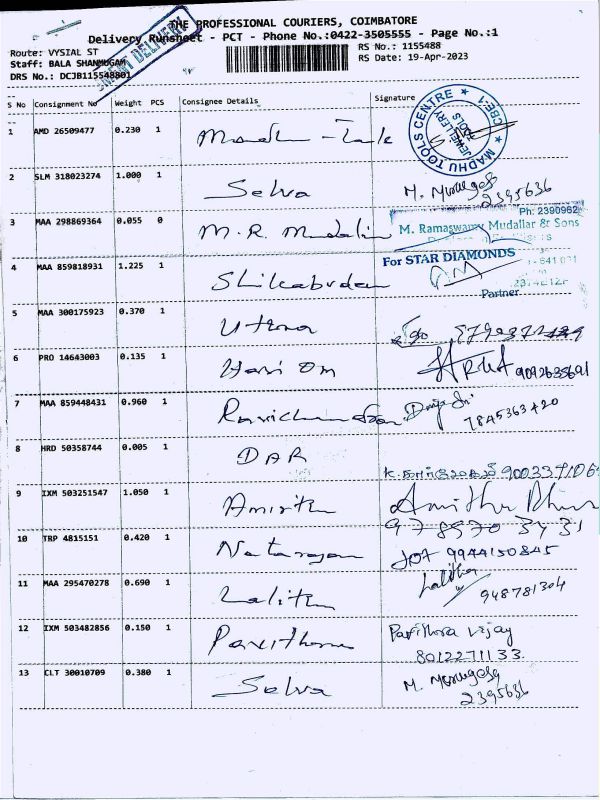 THE PROFESSIONAL COURIERS, COIMBATORE
Delivery Runsheet - PCT - Phone No.:0422-3505555 - Page No.:1
Route: VYSIAL ST
RS No.: 1155488
Staff: BALA SHANMUGAM
RS Date: 19-Apr-2023
DRS No.: DCJB115548801
S No Consignment No Weight PCS Consignee Details Signature
MADHU TOOLS CENTRE ★ CBE-1 ★
JEWELLERY TOOLS
1 AMD 26509477 0.230 1
2 SLM 318023274 1.000 1 Selva M. Murugesa
2395636
3 MAA 298869364 0.055 0 M.R. Mudaliar
Ph: 2390962
M. Ramaswamy Mudaliar & Sons
For STAR DIAMONDS
4 MAA 859818931 1.225 1 Shikabudan
Partner
5 MAA 300175923 0.370 1 Uthra
6 PRO 14643003 0.135 1 Hari Om
7 MAA 859448431 0.960 1 Ravichandran
7845363420
8 HRD 50358744 0.005 1 DAR
9 IXM 503251547 1.050 1 Amirth
10 TRP 4815151 0.420 1 Natarajan
9944150845
11 MAA 295470278 0.690 1 Lalith Lalitha
948781304
12 IXM 503482856 0.150 1 Pavithra Pavithra Vijay
8012271133
13 CLT 30010709 0.380 1 Selva M. Murugesa
2395636